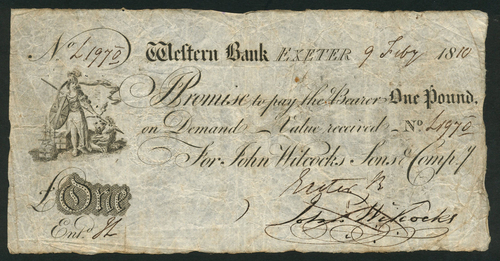 No L1970 Western Bank EXETER 9 Feby 1810
Promise to pay the Bearer One Pound,
on Demand Value received No L1970
For John Wilcocks Sons & Comp.y
Exeter
£One John Wilcocks
Ent.d